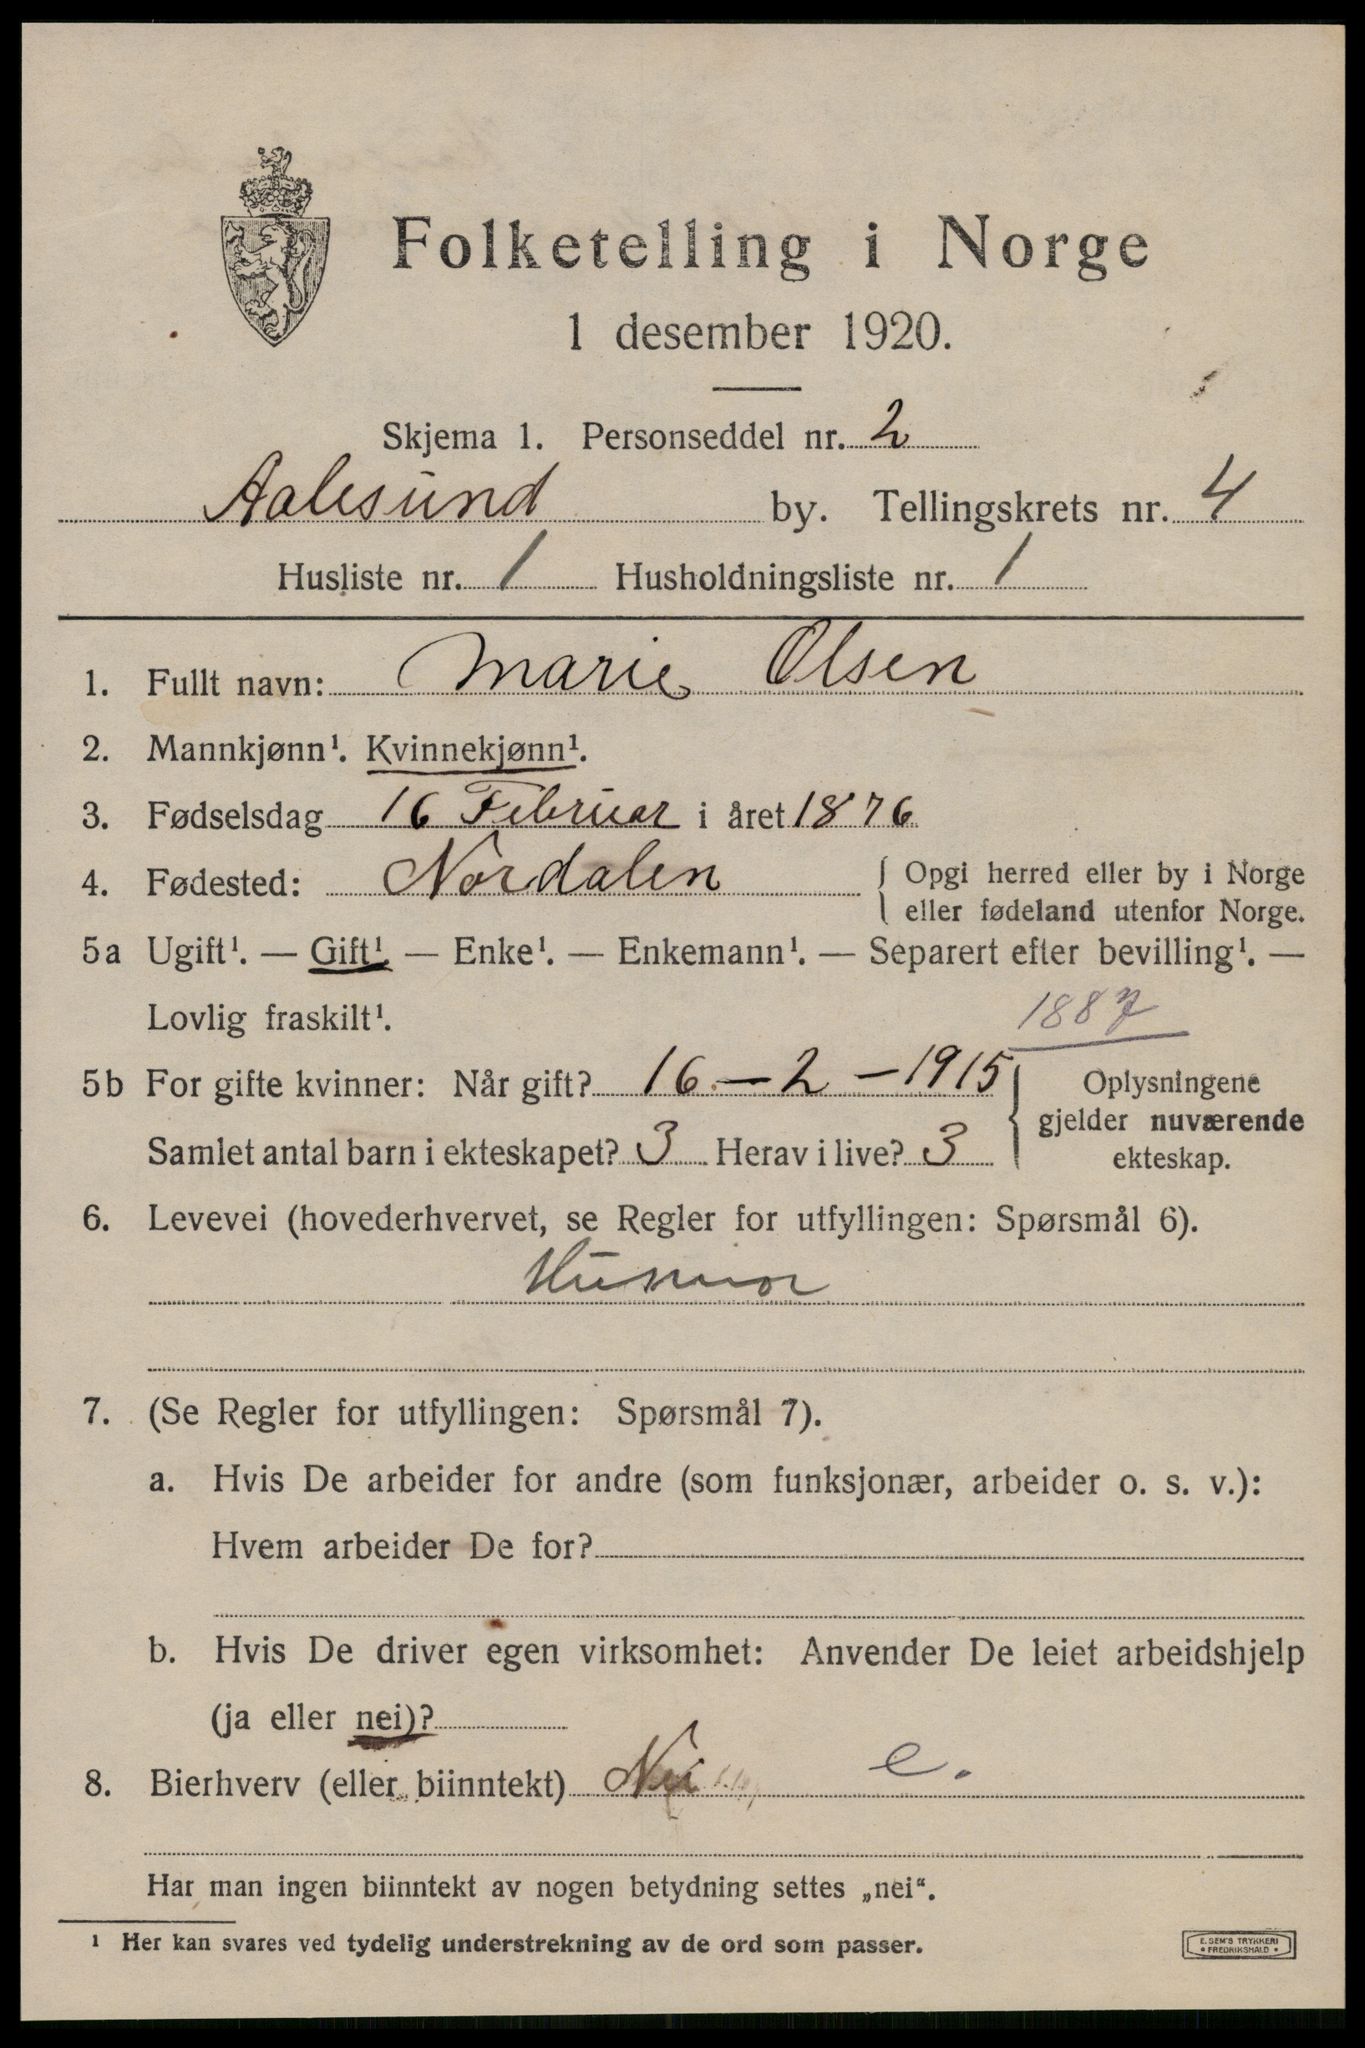 Folketelling i Norge
1 desember 1920.
Skjema 1. Personseddel nr. 2
Aalesund by. Tellingskrets nr. 4
Husliste nr. 1 Husholdningsliste nr. 1
1. Fullt navn: Marie Olsen
2. Mannkjønn¹. Kvinnekjønn¹.
3. Fødselsdag 16 Februar i året 1876
4. Fødested: Nordalen { Opgi herred eller by i Norge
eller fødeland utenfor Norge.
5a Ugift¹. — Gift¹. — Enke¹. — Enkemann¹. — Separert efter bevilling¹. —
Lovlig fraskilt¹.
1887
5b For gifte kvinner: Når gift? 16 - 2 - 1915
Samlet antal barn i ekteskapet? 3 Herav i live? 3
{ Oplysningene
gjelder nuværende
ekteskap.
6. Levevei (hovederhvervet, se Regler for utfyllingen: Spørsmål 6).
Husmor
7. (Se Regler for utfyllingen: Spørsmål 7).
a. Hvis De arbeider for andre (som funksjonær, arbeider o. s. v.):
Hvem arbeider De for?
b. Hvis De driver egen virksomhet: Anvender De leiet arbeidshjelp
(ja eller nei)?
8. Bierhverv (eller biinntekt) Nei e.
Har man ingen biinntekt av nogen betydning settes „nei".
¹ Her kan svares ved tydelig understrekning av de ord som passer.
E. SEM'S TRYKKERI
• FREDRIKSHALD •